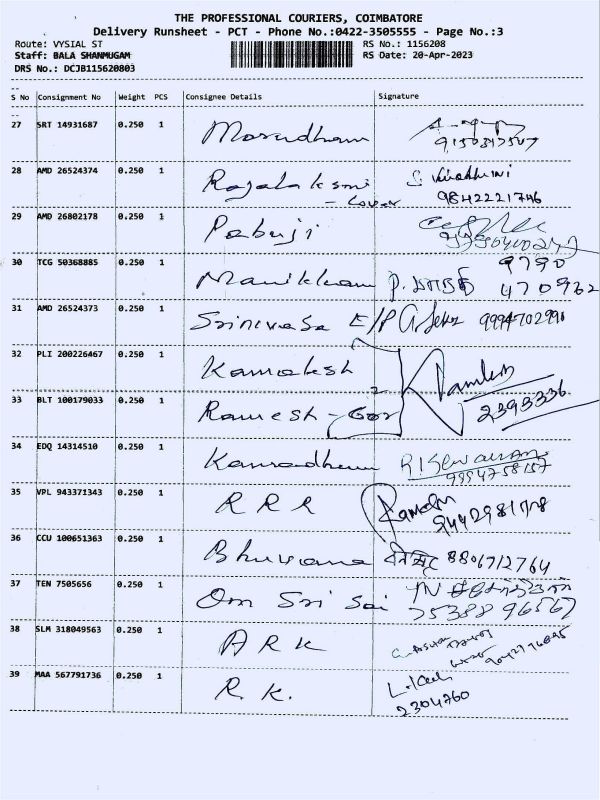 THE PROFESSIONAL COURIERS, COIMBATORE
Delivery Runsheet - PCT - Phone No.:0422-3505555 - Page No.:3
Route: VYSIAL ST RS No.: 1156208
Staff: BALA SHANMUGAM RS Date: 20-Apr-2023
DRS No.: DCJB115620803
S No Consignment No Weight PCS Consignee Details Signature
27 SRT 14931687 0.250 1 Marudham
28 AMD 26524374 0.250 1 Rajalaksmi
- Cover 9842221746
29 AMD 26802178 0.250 1 Pabuji
30 TCG 50368885 0.250 1 Manikkam 9790
470962
31 AMD 26524373 0.250 1 Srinivasa E/P 9994702990
32 PLI 200226467 0.250 1 Kamalesh
33 BLT 100179033 0.250 1 Ramesh - 2393336
34 EDQ 14314510 0.250 1 Kamadhenu
9994758157
35 VPL 943371343 0.250 1 R R R Ramesh
36 CCU 100651363 0.250 1 Bhuvana 8806712764
37 TEN 7505656 0.250 1 Om Sri Sai
75388 96567
38 SLM 318049563 0.250 1 A R K
39 MAA 567791736 0.250 1 R. K.
2304760